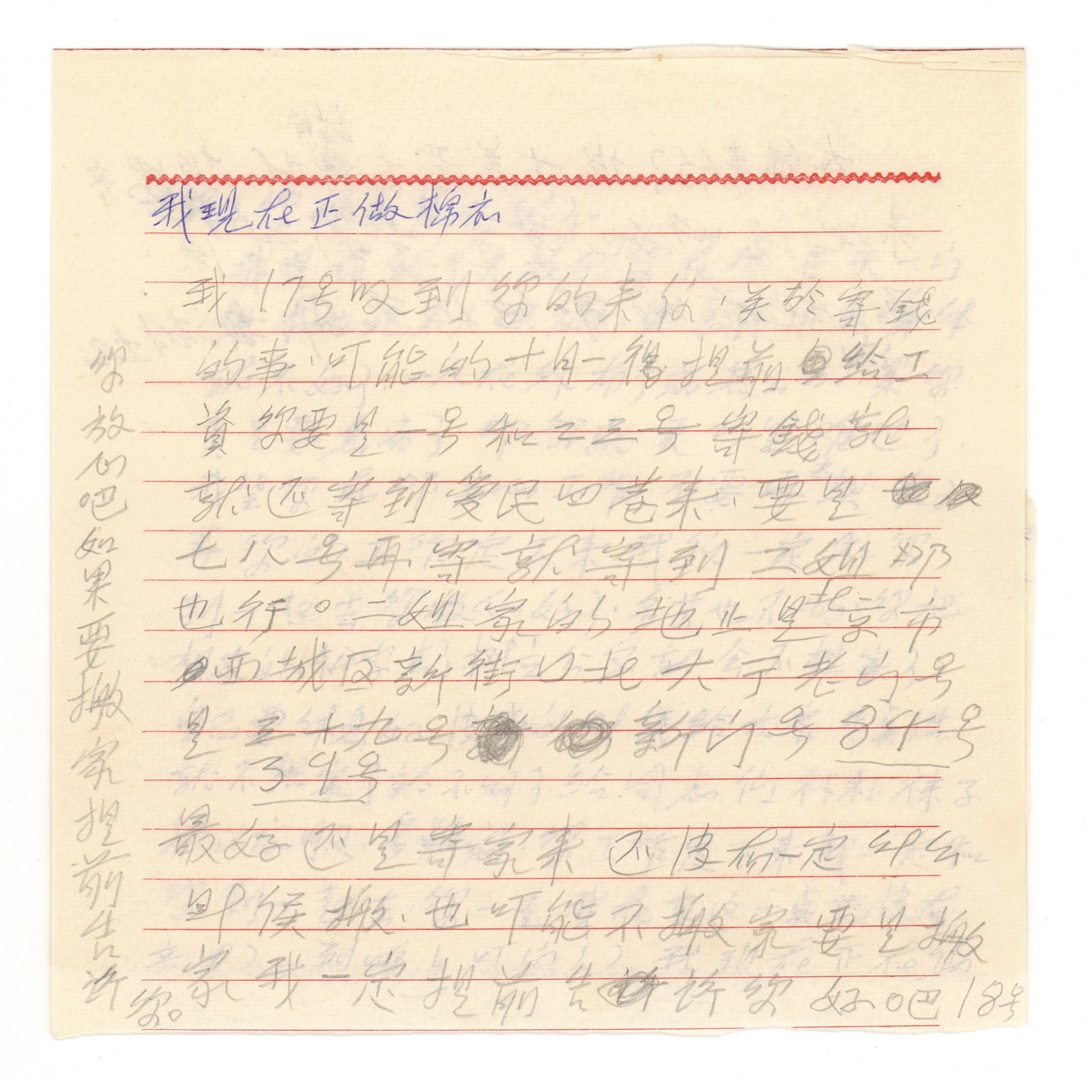 我現在正做棉衣
我17号收到你的来信,关於寄錢
的事,可能的十月一得提前给工
資你要是一号和二三号寄錢就
就还寄到爱民四巷来,要是
七八号再寄就寄到二姐那
也行。二姐家的地止是北京市
西城区新街口北大于老门号
是三十九号 新门号 84号
39号
最好还是寄家来 还没有一定什么
时候搬,也可能不搬家要是搬
家我一定提前告许你 好吧 18号
你放心吧如果要搬家提前告许
你。